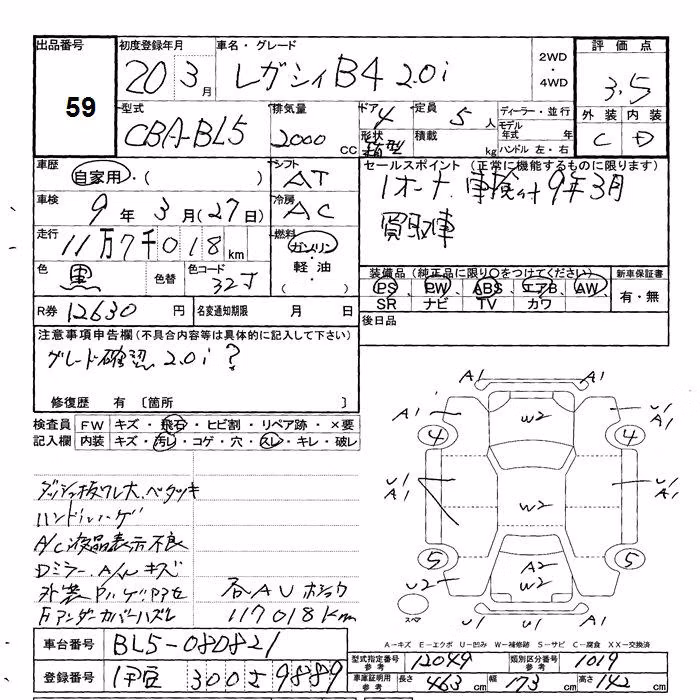 出品番号 初度登録年月 車名・グレード 評価点
59
20 3月 レガシィB4 2.0i 2WD・4WD 3.5
型式 排気量 ドア 4 定員 5人 ディーラー・並行 外装 内装
CBA-BL5 2000CC 形状 箱型 積載 kg モデル年式 年 C D
ハンドル 左・右
車歴 自家用・( ) シフト AT セールスポイント (正常に機能するものに限ります)
1オーナ、車検付 9年3月
買取車
車検 9年3月(27日) 冷房 AC
走行 11万7千018km 燃料 ガソリン・軽油・( )
色 黒 色替 色コード 32J
装備品 (純正品に限り○をつけてください) 新車保証書
PS、PW、ABS、エアB、AW、 有・無
SR ナビ TV カワ
R券 12630円 名変通知期限 月 日 後日品
注意事項申告欄(不具合内容等は具体的に記入して下さい)
グレード確認 2.0i?
修復歴 有 〔箇所 〕
検査員記入欄 FW キズ・飛石・ヒビ割・リペア跡・×要
内装 キズ・汚レ・コゲ・穴・スレ・キレ・破レ
ハンドルハゲ
A/C液晶表示不良
Dミラー、A/Wキズ
各AU
117018Km
Fアンダーカバーハズレ
A1 A1
A1 W2 U1 A1
4 4
U1 A1 W2 U1 A1
5 5
U2 A2 W2
スペア U1 U1 A1
A-キズ E-エクボ U-凹み W-補修跡 S-サビ C-腐食 XX-交換済
車台番号 BL5-080821
型式指定番号 参考 12049 類別区分番号 参考 1019
登録番号 伊豆 300 さ 9889
車庫証明用 参考 長さ 463cm 幅 173cm 高さ 142cm